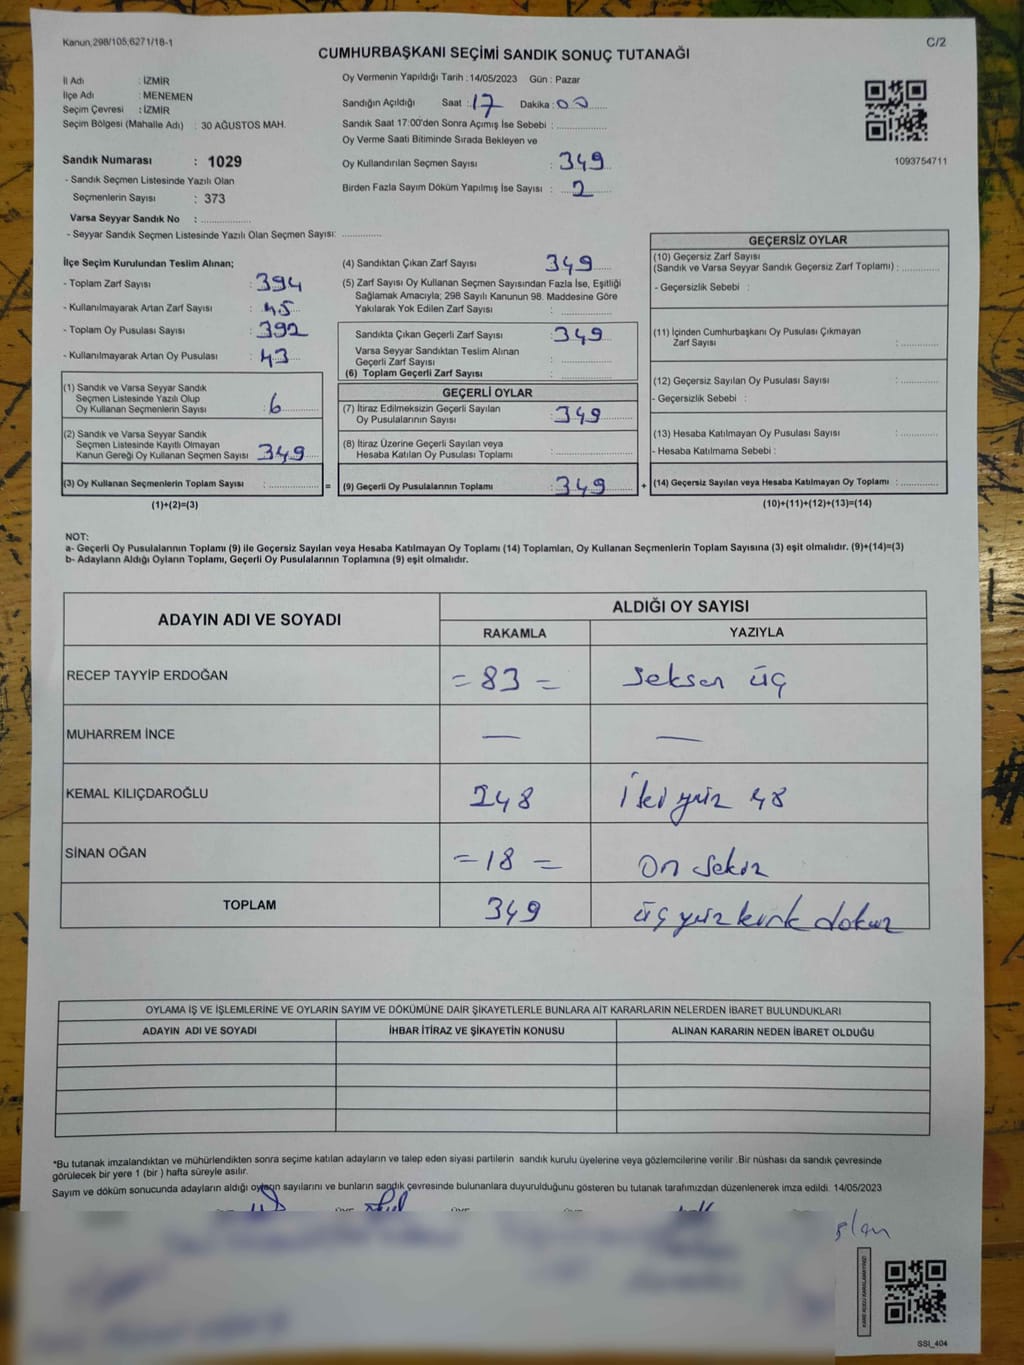 Kanun,298/105,6271/18-1
C/2
CUMHURBAŞKANI SEÇİMİ SANDIK SONUÇ TUTANAĞI
İl Adı : İZMİR
İlçe Adı : MENEMEN
Seçim Çevresi : İZMİR
Seçim Bölgesi (Mahalle Adı) : 30 AĞUSTOS MAH.
Sandık Numarası : 1029
- Sandık Seçmen Listesinde Yazılı Olan
Seçmenlerin Sayısı : 373
Varsa Seyyar Sandık No : ..............
- Seyyar Sandık Seçmen Listesinde Yazılı Olan Seçmen Sayısı: ..............
Oy Vermenin Yapıldığı Tarih : 14/05/2023 Gün : Pazar
Sandığın Açıldığı Saat : 17 Dakika : 00
Sandık Saat 17:00'den Sonra Açımış İse Sebebi : ..............
Oy Verme Saati Bitiminde Sırada Bekleyen ve
Oy Kullandırılan Seçmen Sayısı : 349
Birden Fazla Sayım Döküm Yapılmış İse Sayısı : 2
1093754711
İlçe Seçim Kurulundan Teslim Alınan;
- Toplam Zarf Sayısı : 394
- Kullanılmayarak Artan Zarf Sayısı : 45
- Toplam Oy Pusulası Sayısı : 392
- Kullanılmayarak Artan Oy Pusulası : 43
(1) Sandık ve Varsa Seyyar Sandık
Seçmen Listesinde Yazılı Olup
Oy Kullanan Seçmenlerin Sayısı : 6
(2) Sandık ve Varsa Seyyar Sandık
Seçmen Listesinde Kayıtlı Olmayan
Kanun Gereği Oy Kullanan Seçmen Sayısı : 349
(3) Oy Kullanan Seçmenlerin Toplam Sayısı : ..............
=
(1)+(2)=(3)
(4) Sandıktan Çıkan Zarf Sayısı : 349
(5) Zarf Sayısı Oy Kullanan Seçmen Sayısından Fazla İse, Eşitliği
Sağlamak Amacıyla; 298 Sayılı Kanunun 98. Maddesine Göre
Yakılarak Yok Edilen Zarf Sayısı : ..............
Sandıkta Çıkan Geçerli Zarf Sayısı : 349
Varsa Seyyar Sandıktan Teslim Alınan
Geçerli Zarf Sayısı : ..............
(6) Toplam Geçerli Zarf Sayısı : ..............
GEÇERLİ OYLAR
(7) İtiraz Edilmeksizin Geçerli Sayılan
Oy Pusulalarının Sayısı : 349
(8) İtiraz Üzerine Geçerli Sayılan veya
Hesaba Katılan Oy Pusulası Toplamı : ..............
(9) Geçerli Oy Pusulalarının Toplamı : 349
+
GEÇERSİZ OYLAR
(10) Geçersiz Zarf Sayısı
(Sandık ve Varsa Seyyar Sandık Geçersiz Zarf Toplamı) : ..............
- Geçersizlik Sebebi :
(11) İçinden Cumhurbaşkanı Oy Pusulası Çıkmayan
Zarf Sayısı : ..............
(12) Geçersiz Sayılan Oy Pusulası Sayısı : ..............
- Geçersizlik Sebebi :
(13) Hesaba Katılmayan Oy Pusulası Sayısı : ..............
- Hesaba Katılmama Sebebi :
(14) Geçersiz Sayılan veya Hesaba Katılmayan Oy Toplamı : ..............
(10)+(11)+(12)+(13)=(14)
NOT:
a- Geçerli Oy Pusulalarının Toplamı (9) ile Geçersiz Sayılan veya Hesaba Katılmayan Oy Toplamı (14) Toplamları, Oy Kullanan Seçmenlerin Toplam Sayısına (3) eşit olmalıdır. (9)+(14)=(3)
b- Adayların Aldığı Oyların Toplamı, Geçerli Oy Pusulalarının Toplamına (9) eşit olmalıdır.
ADAYIN ADI VE SOYADI
ALDIĞI OY SAYISI
RAKAMLA YAZIYLA
RECEP TAYYİP ERDOĞAN = 83 = Seksen üç
MUHARREM İNCE — —
KEMAL KILIÇDAROĞLU 248 İki yüz 48
SİNAN OĞAN = 18 = On sekiz
TOPLAM 349 üç yüz kırk dokuz
OYLAMA İŞ VE İŞLEMLERİNE VE OYLARIN SAYIM VE DÖKÜMÜNE DAİR ŞİKAYETLERLE BUNLARA AİT KARARLARIN NELERDEN İBARET BULUNDUKLARI
ADAYIN ADI VE SOYADI İHBAR İTİRAZ VE ŞİKAYETİN KONUSU ALINAN KARARIN NEDEN İBARET OLDUĞU
*Bu tutanak imzalandıktan ve mühürlendikten sonra seçime katılan adayların ve talep eden siyasi partilerin sandık kurulu üyelerine veya gözlemcilerine verilir .Bir nüshası da sandık çevresinde
görülecek bir yere 1 (bir ) hafta süreyle asılır.
Sayım ve döküm sonucunda adayların aldığı oyların sayılarını ve bunların sandık çevresinde bulunanlara duyurulduğunu gösteren bu tutanak tarafımızdan düzenlenerek imza edildi. 14/05/2023
SSI_404